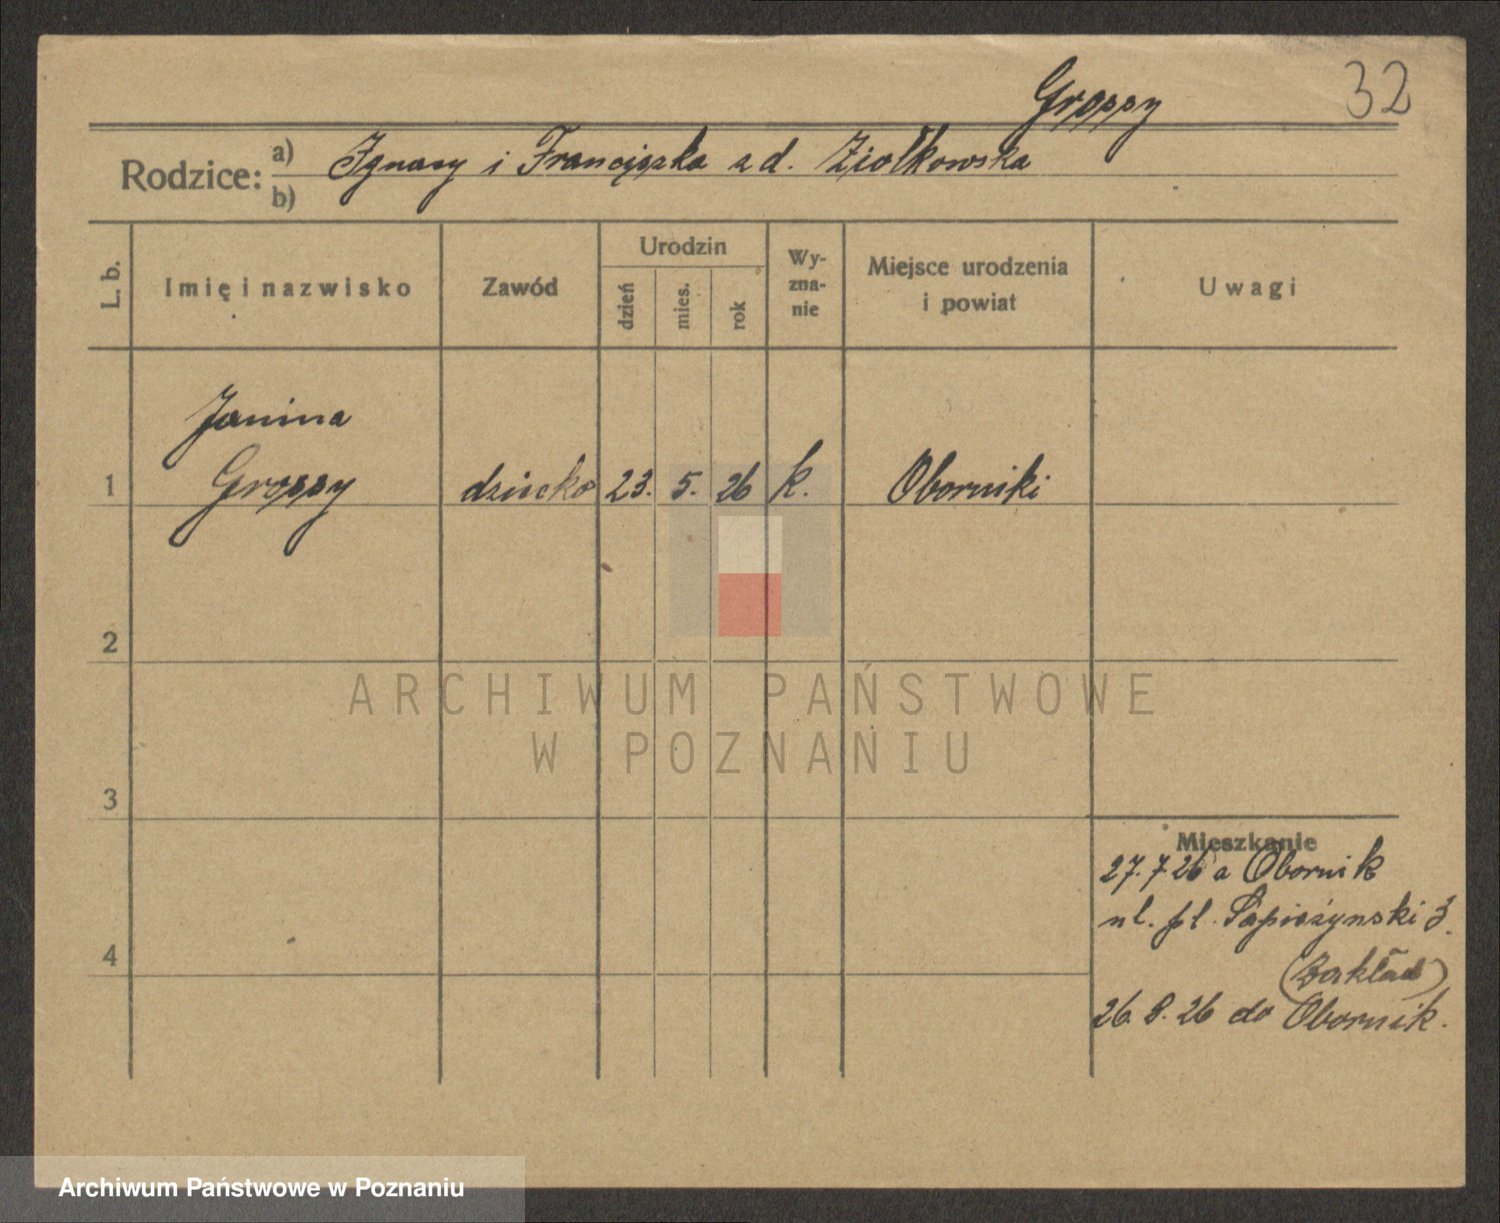 Groppy
32
Rodzice: a) Ignacy i Franciszka z d. Ziołkowska
b)
L. b.
Imię i nazwisko
Zawód
Urodzin
dzień
mies.
rok
Wy-
zna-
nie
Miejsce urodzenia
i powiat
Uwagi
Janina
1 Groppy dziecko 23. 5. 26 k. Oborniki
2
ARCHIWUM PAŃSTWOWE
W POZNANIU
3
Mieszkanie
27.7.26 a Obornik
ul. pl. Sapieżynski 3.
4
(Zakład)
26. 8. 26 do Obornik.
Archiwum Państwowe w Poznaniu